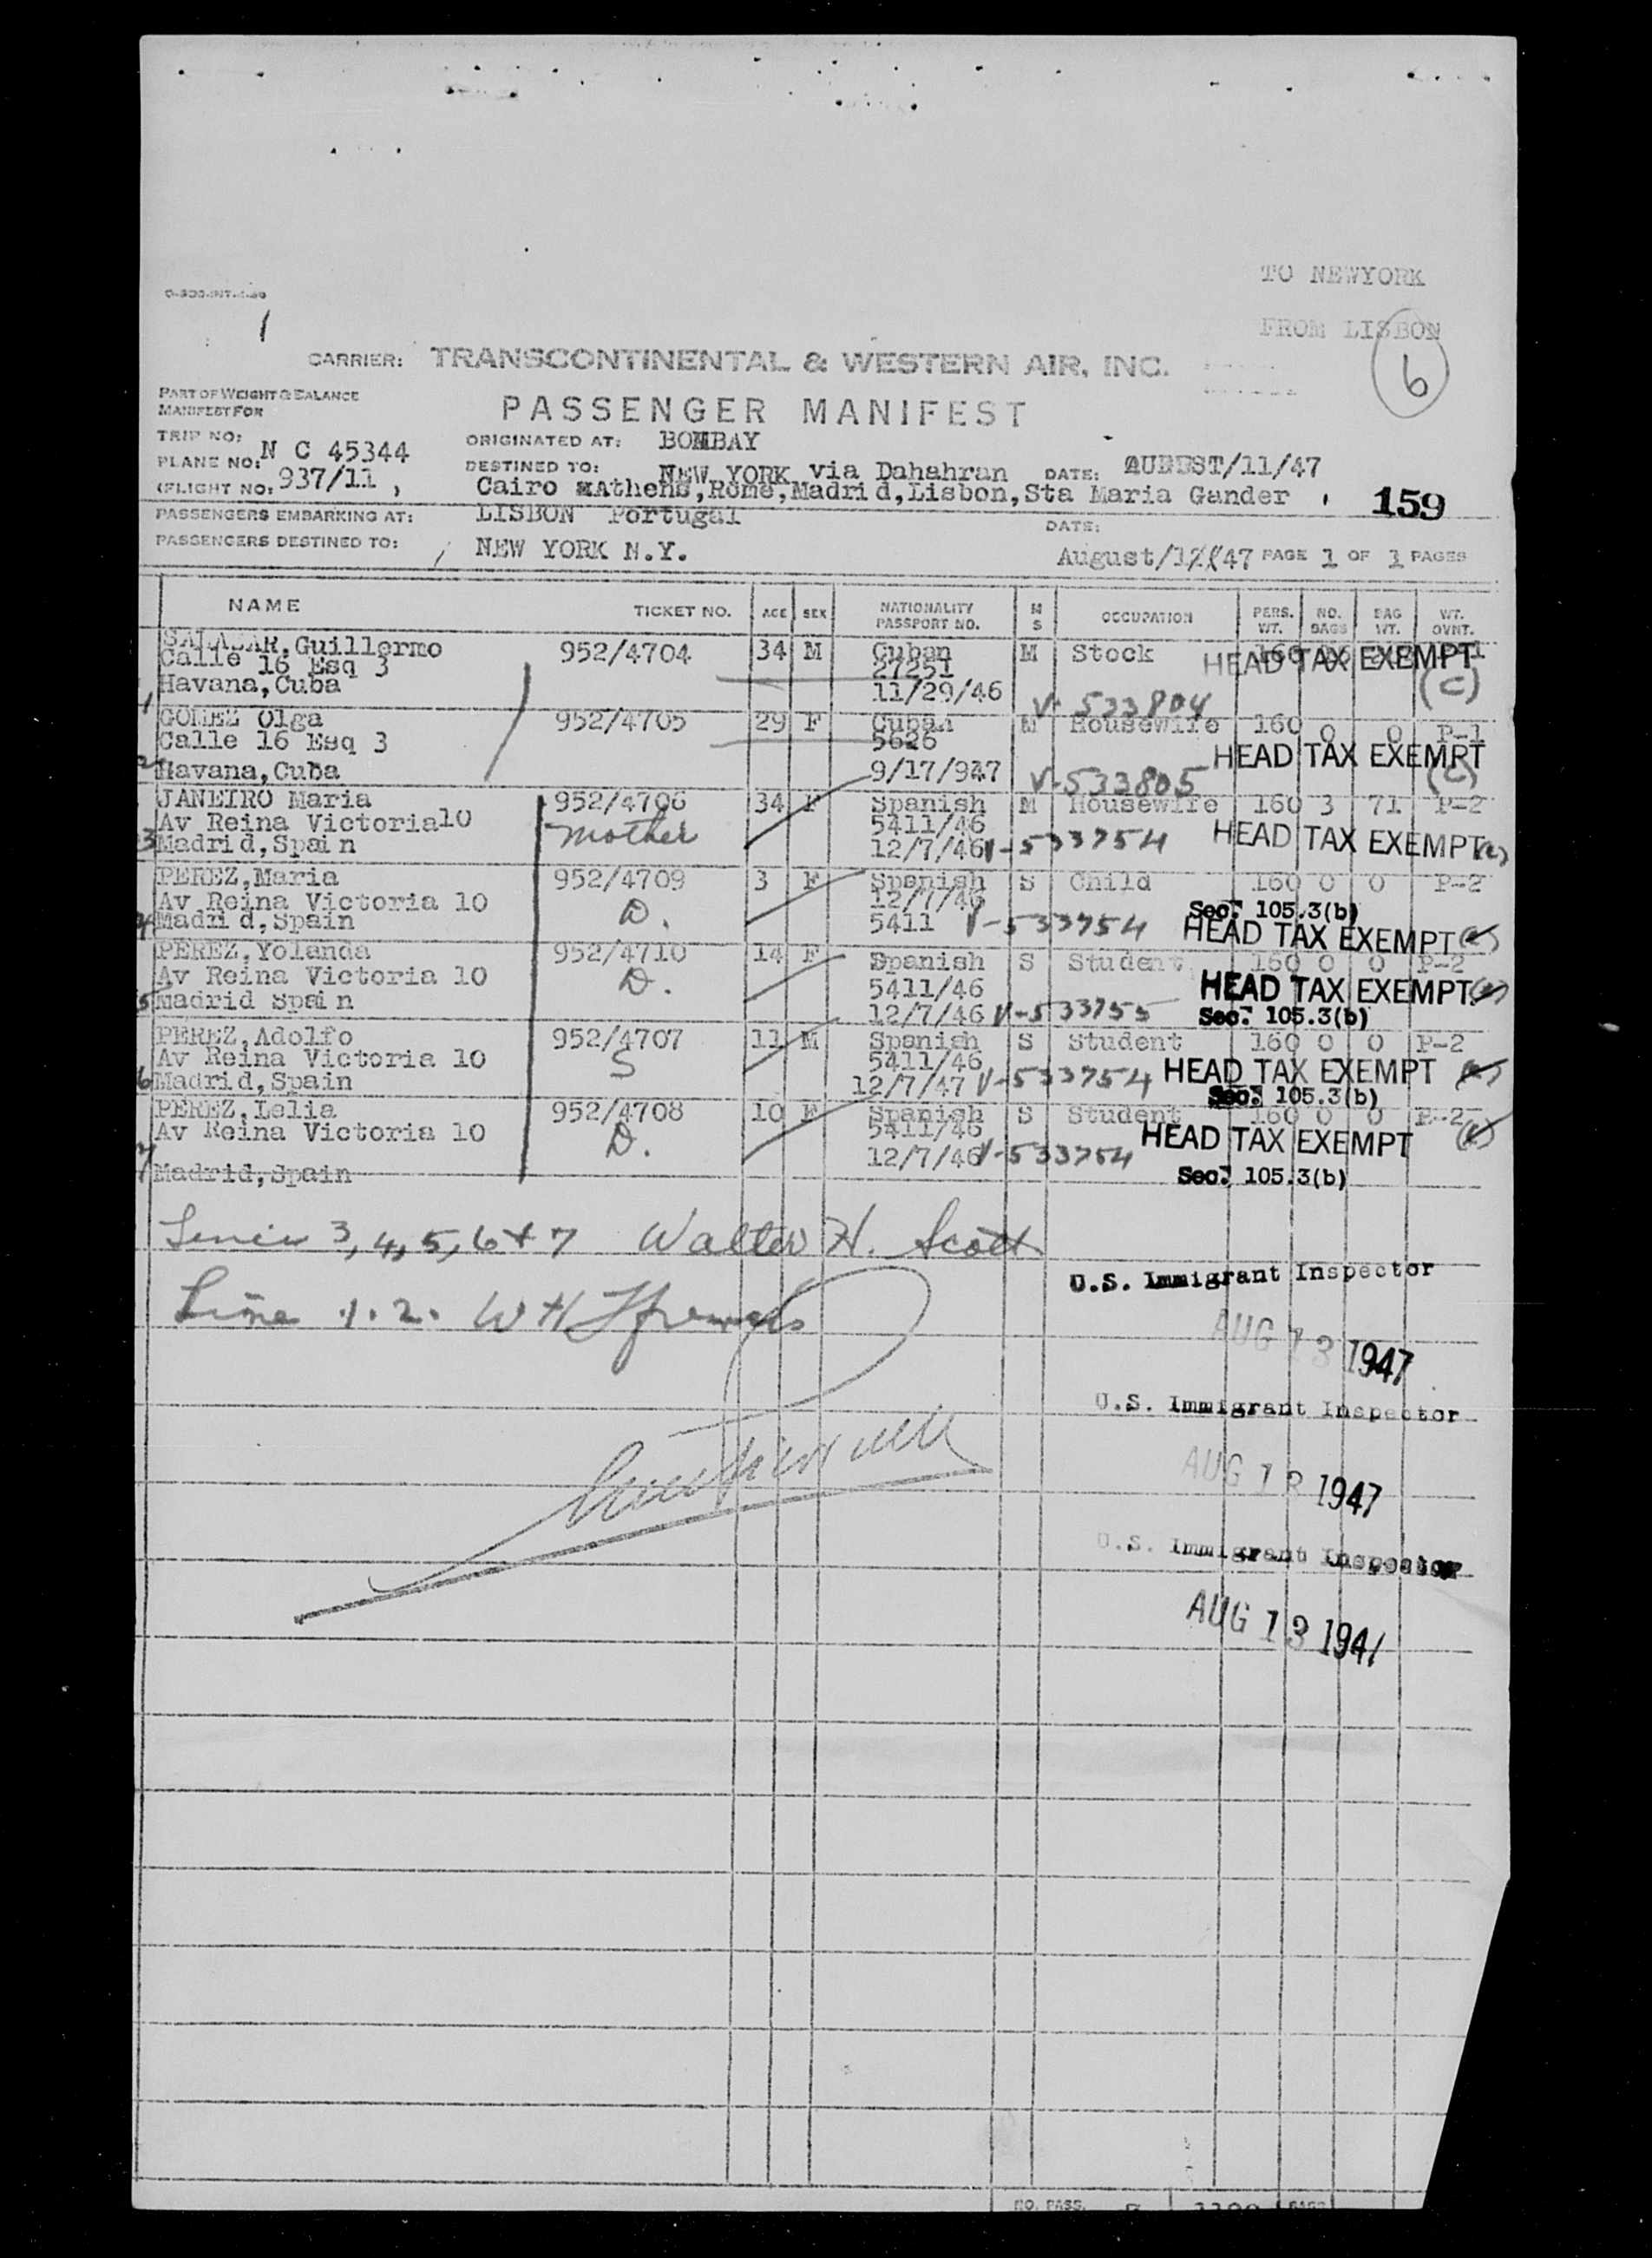 TO NEWYORK
FROM LISBON
1
6
CARRIER: TRANSCONTINENTAL & WESTERN AIR, INC.
PART OF WEIGHT & BALANCE
MANIFEST FOR
PASSENGER MANIFEST
TRIP NO:
PLANE NO: N C 45344
ORIGINATED AT: BOMBAY
DESTINED TO: NEW YORK via Dahahran DATE: /11/47
(FLIGHT NO: 937/11 , Cairo Athens,Rome,Madrid,Lisbon,Sta Maria Gander
159
PASSENGERS EMBARKING AT: LISBON Portugal
DATE:
PASSENGERS DESTINED TO: NEW YORK N.Y. August/ 47 PAGE 1 OF 1 PAGES
NAME TICKET NO. AGE SEX NATIONALITY PASSPORT NO. M S OCCUPATION PERS. WT. NO. BAGS BAG WT. WT. OVNT.
SALAZAR, Guillermo 952/4704 34 M Cuban M Stock 160
Calle 16 Esq 3 27251 HEAD TAX EXEMPT
Havana, Cuba 11/29/46 (C)
1 V-533804
GOMEZ Olga 952/4705 29 F Cuban M Housewife 160 0 0 P-1
Calle 16 Esq 3 5626 HEAD TAX EXEMPT
2 Havana, Cuba 9/17/947 V-533805 (C)
JANEIRO Maria 952/4706 34 F Spanish M Housewife 160 3 71 P-2
Av Reina Victoria10 mother 5411/46 HEAD TAX EXEMPT
3 Madrid, Spain 12/7/46 V-533754
PEREZ, Maria 952/4709 3 F Spanish S Child 160 0 0 P-2
Av Reina Victoria 10 D. 12/7/46 Sec. 105.3(b)
4 Madrid, Spain 5411 V-533754 HEAD TAX EXEMPT
PEREZ, Yolanda 952/4710 14 F Spanish S Student 160 0 0 P-2
Av Reina Victoria 10 D. 5411/46 HEAD TAX EXEMPT
5 Madrid Spain 12/7/46 V-533755 Sec. 105.3(b)
PEREZ, Adolfo 952/4707 11 M Spanish S Student 160 0 0 P-2
Av Reina Victoria 10 S 5411/46 HEAD TAX EXEMPT
6 Madrid, Spain 12/7/47 V-533754 Sec. 105.3(b)
PEREZ, Lelia 952/4708 10 F Spanish S Student 160 0 0 P-2
Av Reina Victoria 10 D. 5411/46 HEAD TAX EXEMPT
7 Madrid, Spain 12/7/46 V-533754 Sec. 105.3(b)
3, 4, 5, 6 + 7 Walter H. Scott
U.S. Immigrant Inspector
Line 1.2. W H
AUG 13 1947
U.S. Immigrant Inspector
AUG 13 1947
U.S. Immigrant Inspector
AUG 13 1947
NO. PASS.